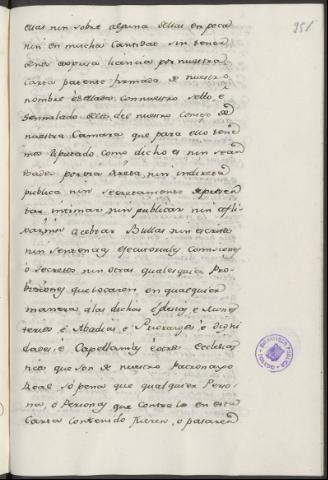 351
ellas nin sobre alguna dellas en poca
nin en mucha Cantidad sin tener
dello expresa licencia por nuestra
Carta patente firmada de nuestro
nombre e sellada con nuestro sello e
señalada dellos del nuestro Consejo de
nuestra Camara que para ello tene
mos diputado como dicho es nin sean
osados por via directa nin indirecta
publica nin secretamente de presen
tar intimar nin publicar nin
azebtar Bullas nin escritos
nin sentencias executoriales Comisiones
o secretos nin otras qualesquier Pro
bisiones que tocaren en qualquier
manera a las dichas Iglesias e Mones
terios e Abadias e Prioradgos e digni
dades, e Capellanias e otros Ecclesias
ticos que son de nuestro Patronazgo
Real so pena que qualquier Perso
na, o Personas que contra lo en esta
Carta Contenido fueren, o pasaren